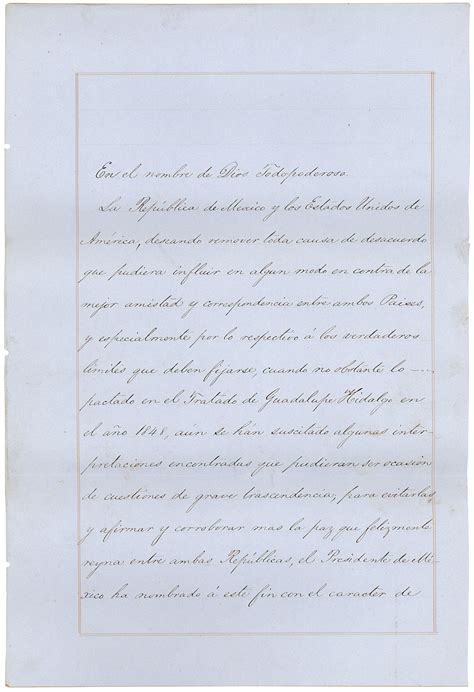 En el nombre de Dios Todopoderoso.
La República de Mexico y los Estados Unidos de
América, deseando remover toda causa de desacuerdo
que pudiera influir en algun modo en contra de la
mejor amistad y correspondencia entre ambos Paises,
y especialmente por lo respectivo á los verdaderos
limites que deben fijarse, cuando no obstante lo
pactado en el Tratado de Guadalupe Hidalgo en
el año 1848, aún se hán suscitado algunas inter-
pretaciones encontradas que pudieran ser ocasion
de cuestiones de grave trascendencia, para evitarlas,
y afirmar y corroborar mas la paz que felizmente
reyna entre ambas Repúblicas, el Presidente de Mé-
xico ha nombrado á este fin con el caracter de